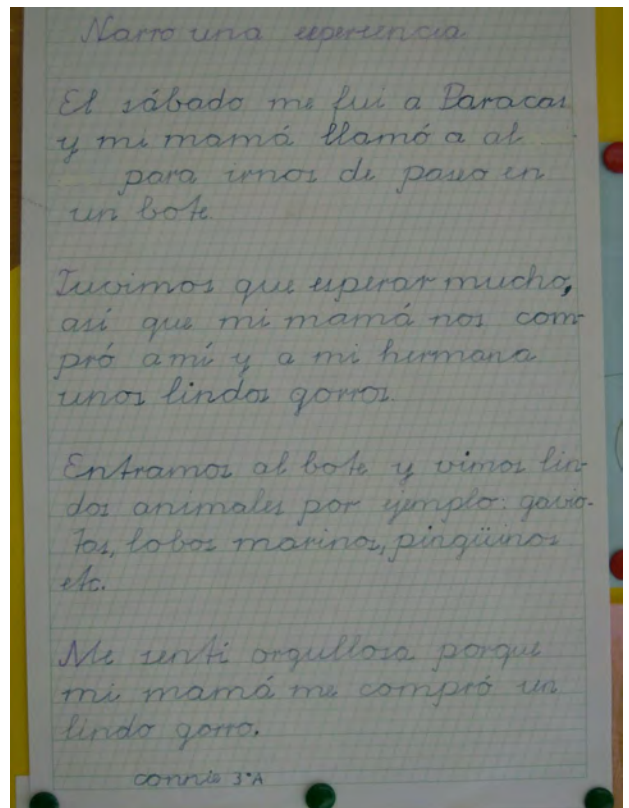 Narro una esperiencia
El sábado me fui a Paracas
y mi mamá llamó a al
para irnos de paseo en
un bote.
Tuvimos que esperar mucho,
así que mi mamá nos com-
pró a mí y a mi hermana
unos lindos gorros.
Entramos al bote y vimos lin-
dos animales por ejemplo: gavio-
tas, lobos marinos, pingüinos
etc.
Me sentí orgullosa porque
mi mamá me compró un
lindo gorro.
connie 3°A